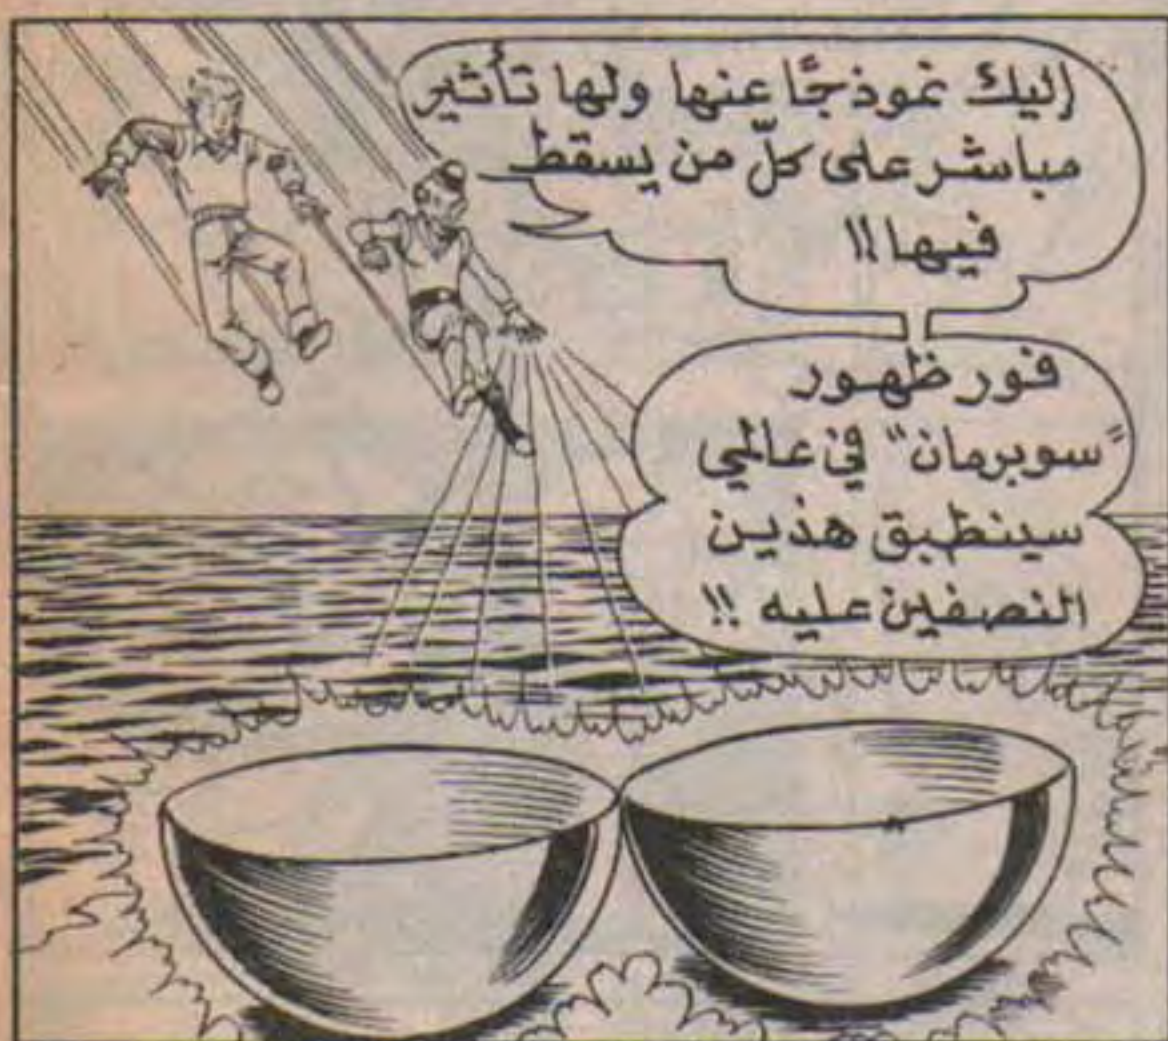 إليك نموذجًا عنها ولها تأثير
مباشر على كلّ من يسقط
فيها!!
فور ظهور
"سوبرمان" في عالمي
سينطبق هذين
النصفين عليه!!